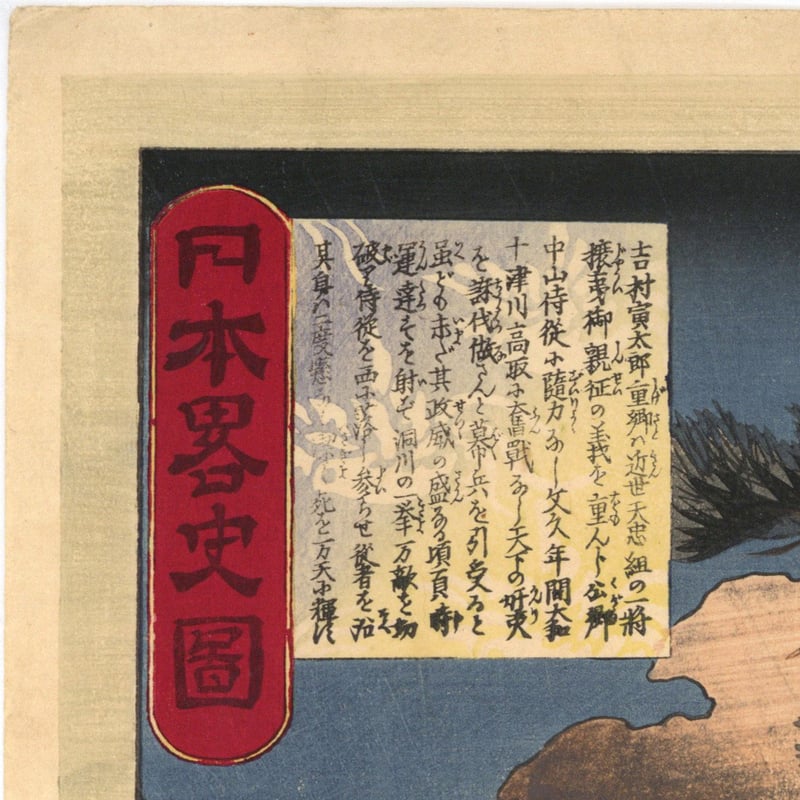 吉村寅太郎重郷ハ近世天忠組の一将
攘夷御親征の義を重んじ公卿
中山侍従に随力なし文久年間大和
十津川高取に奮戦なし天下の奸吏
を誅代做さんと幕兵を引受ると
虽ども未だ其政威の盛なる頃頁時
運達せを射ぞ洞川の一挙万敵を切
破り侍従を西に落し参らせ従者を
其身ハ二度 死を一万天に輝に
日本畧史圖